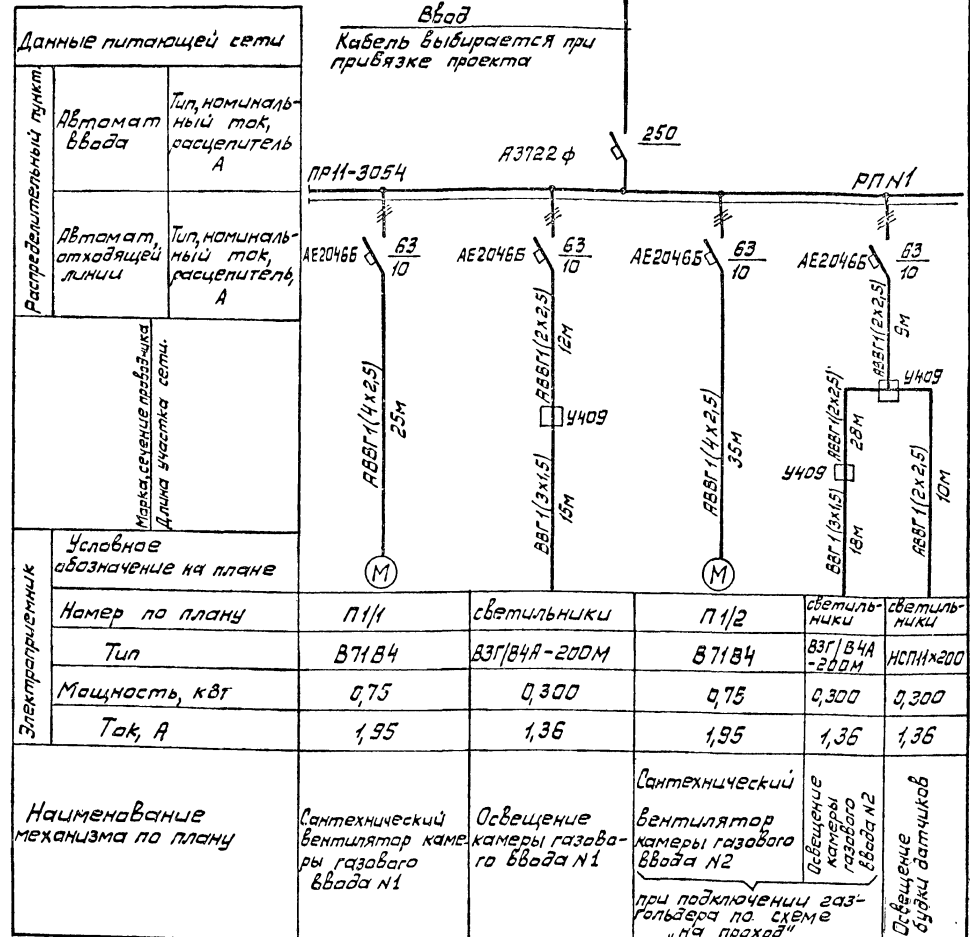 Ввод
Кабель выбирается при
привязке проекта
Данные питающей сети
Распределительный пункт.
Автомат
ввода
Тип, номиналь-
ный ток,
расцепитель
А
Автомат,
отходящей
линии
Тип, номиналь-
ный ток,
расцепитель,
А
Марка, сечение проводника
Длина участка сети.
ПР11-3054
А3722ф
250
РПN1
АЕ2046Б
63
10
АЕ2046Б
63
10
АЕ2046Б
63
10
АЕ2046Б
63
10
АВВГ1(4х2,5)
25м
АВВГ1(2х2,5)
12м
У409
ВВГ1(3х1,5)
15м
АВВГ1(4х2,5)
35м
АВВГ1(2х2,5)
9м
У409
АВВГ1(2х2,5)
28м
У409
ВВГ1(3х1,5)
18м
АВВГ1(2х2,5)
10м
М
М
Электроприемник
Условное
обозначение на плане
Номер по плану
П1/1
светильники
П1/2
светиль-
ники
светиль-
ники
Тип
В71В4
ВЗГ/В4А-200М
В71В4
ВЗГ/В4А
-200М
НСП11х200
Мощность, кВт
0,75
0,300
0,75
0,300
0,300
Ток, А
1,95
1,36
1,95
1,36
1,36
Наименование
механизма по плану
Сантехнический
вентилятор каме-
ры газового
ввода N1
Освещение
камеры газово-
го ввода N1
Сантехнический
вентилятор
камеры газового
ввода N2
Освещение
камеры
газового
ввода N2
при подключении газ-
гольдера по схеме
"на проход"
Освещение
будки датчиков